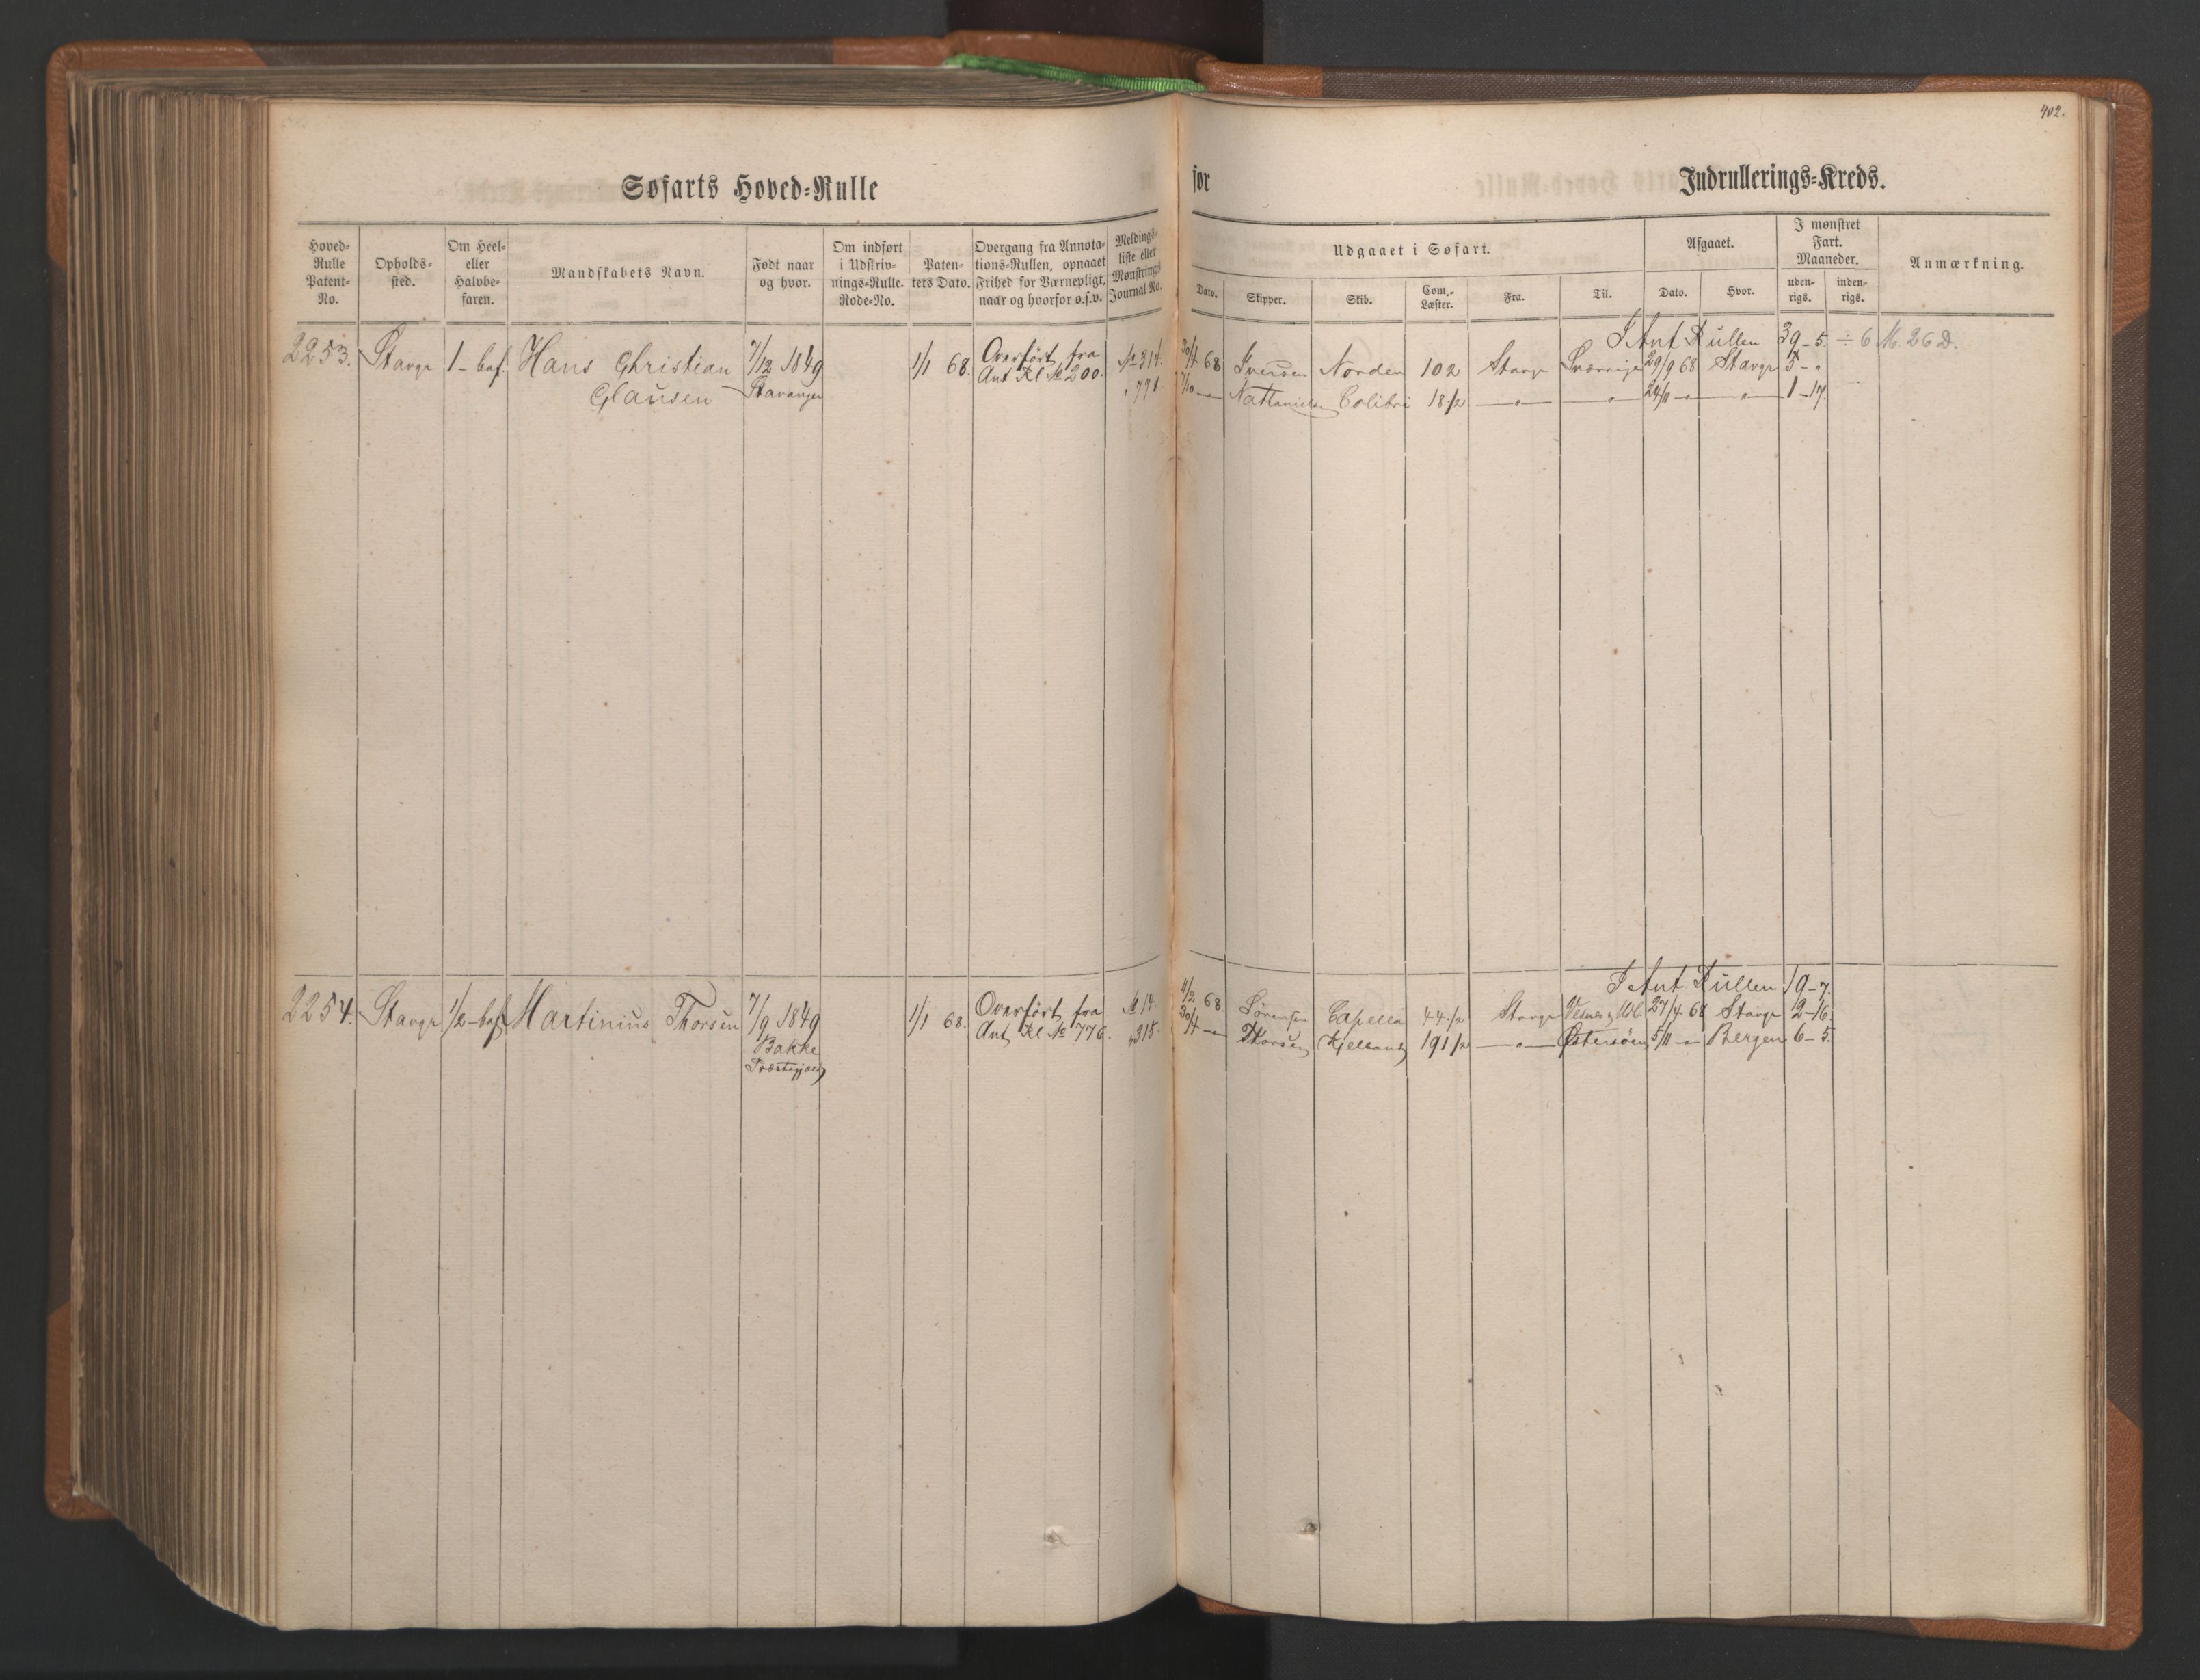 402.
Søfarts Hoved=Rulle for Indrullerings=Kreds.
Hoved=Rulle Patent=No.
Opholds=sted.
Om Heel= eller Halvbe=faren.
Mandskabets Navn.
Født naar og hvor.
Om indført i Udskriv=nings=Rulle. Rode=No.
Paten=tets Dato.
Overgang fra Annota=tions=Rullen, opnaaet Frihed for Værnepligt, naar og hvorfor o.s.v.
Meldings=liste eller Mønstrings Journal No.
Udgaaet i Søfart.
Dato.
Skipper.
Skib.
Com.=Læster.
Fra.
Til.
Afgaaet.
Dato.
Hvor.
I mønstret Fart. Maaneder.
uden=rigs.
inden=rigs.
Anmærkning.
I Ant Rullen 39-5. ÷ 6 M. 26 D.
2253. Stavgr 1-bef. Hans Christian 7/12 1849 1/1 68. Overført fra № 314. 30/4 68 Iversen Norden 102 Stavgr 29/9 68 Stavgr 5-"
Clausen Stavanger Ant Rl № 200. 18 1/2 —"— —"— 24/11 —"— —"— 1-17.
Colibri
I Ant Rullen 19-7.
2254. Stavgr 1/2-bef Martinius Thorsen 7/9 1849 1/1 68. Overført fra № 14. 11/2 68 Sørensen Capella 44 1/2 Stavgr 27/4 68 Stavgr 2-16.
Bakke Ant Rl № 776. " 315. 30/4 —"— Thorsen Kjelland 191 1/2 —"— Østersøen 5/11 —"— Bergen 6-5.
Præstegjæld